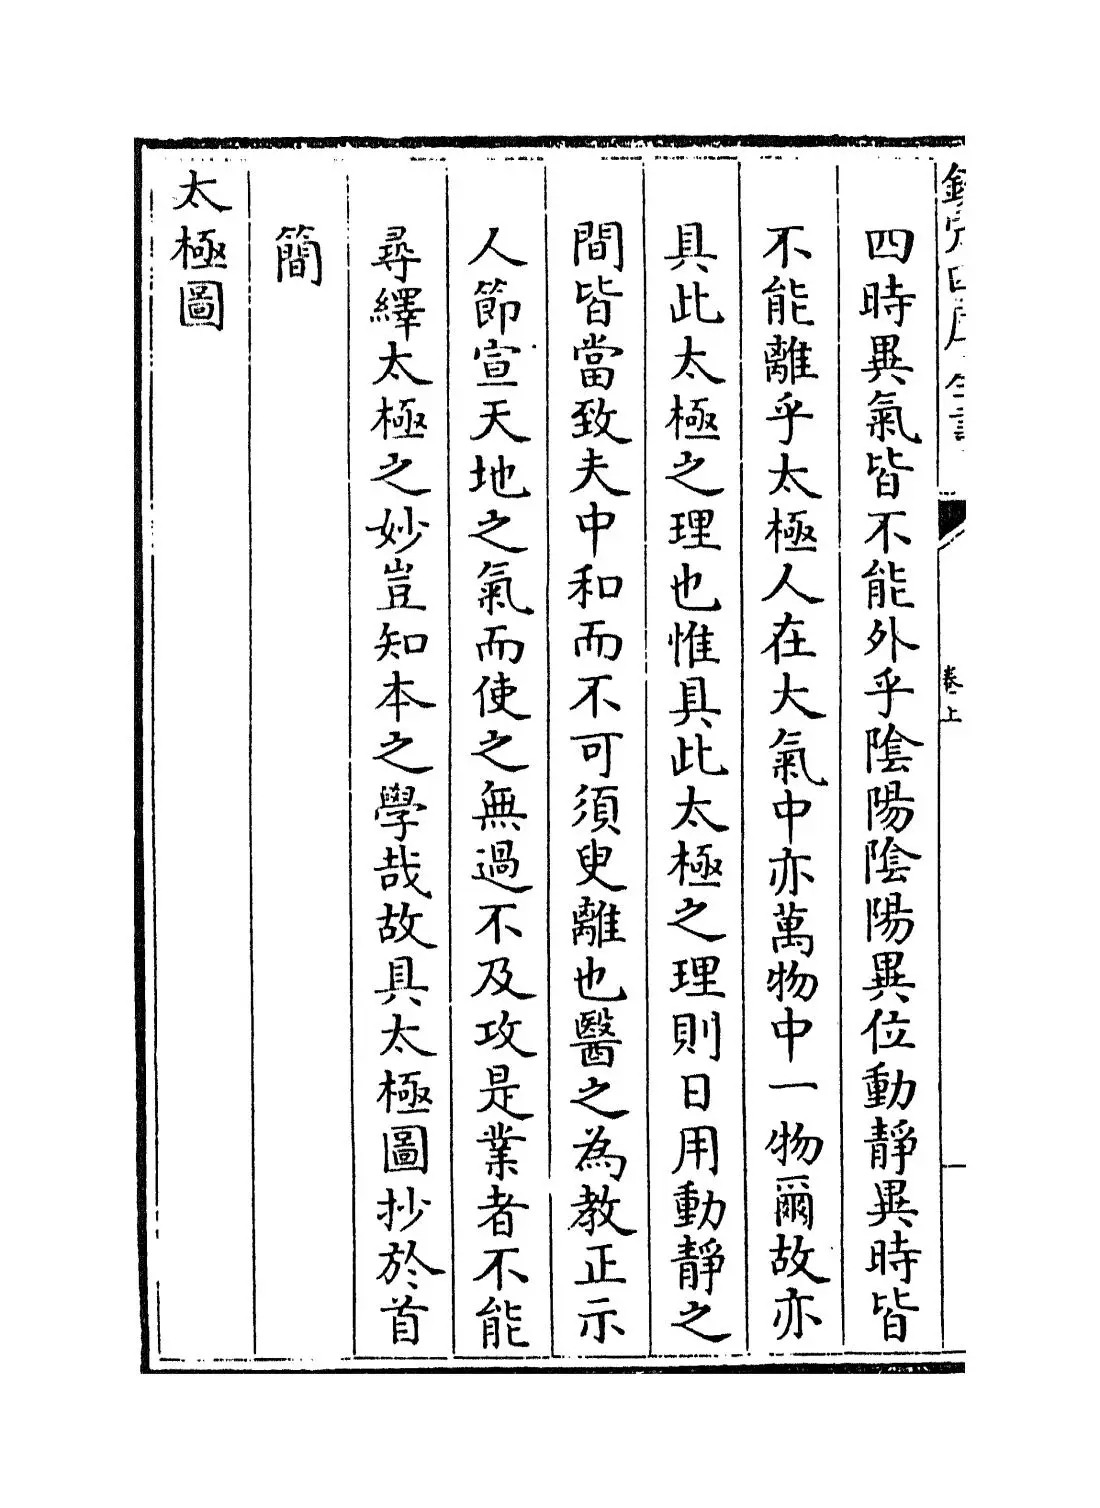 欽定四庫全書
卷上
四時異氣皆不能外乎陰陽陰陽異位動靜異時皆
不能離乎太極人在大氣中亦萬物中一物爾故亦
具此太極之理也惟具此太極之理則日用動靜之
間皆當致夫中和而不可須臾離也醫之為教正示
人節宣天地之氣而使之無過不及攻是業者不能
尋繹太極之妙豈知本之學哉故具太極圖抄於首
簡
太極圖